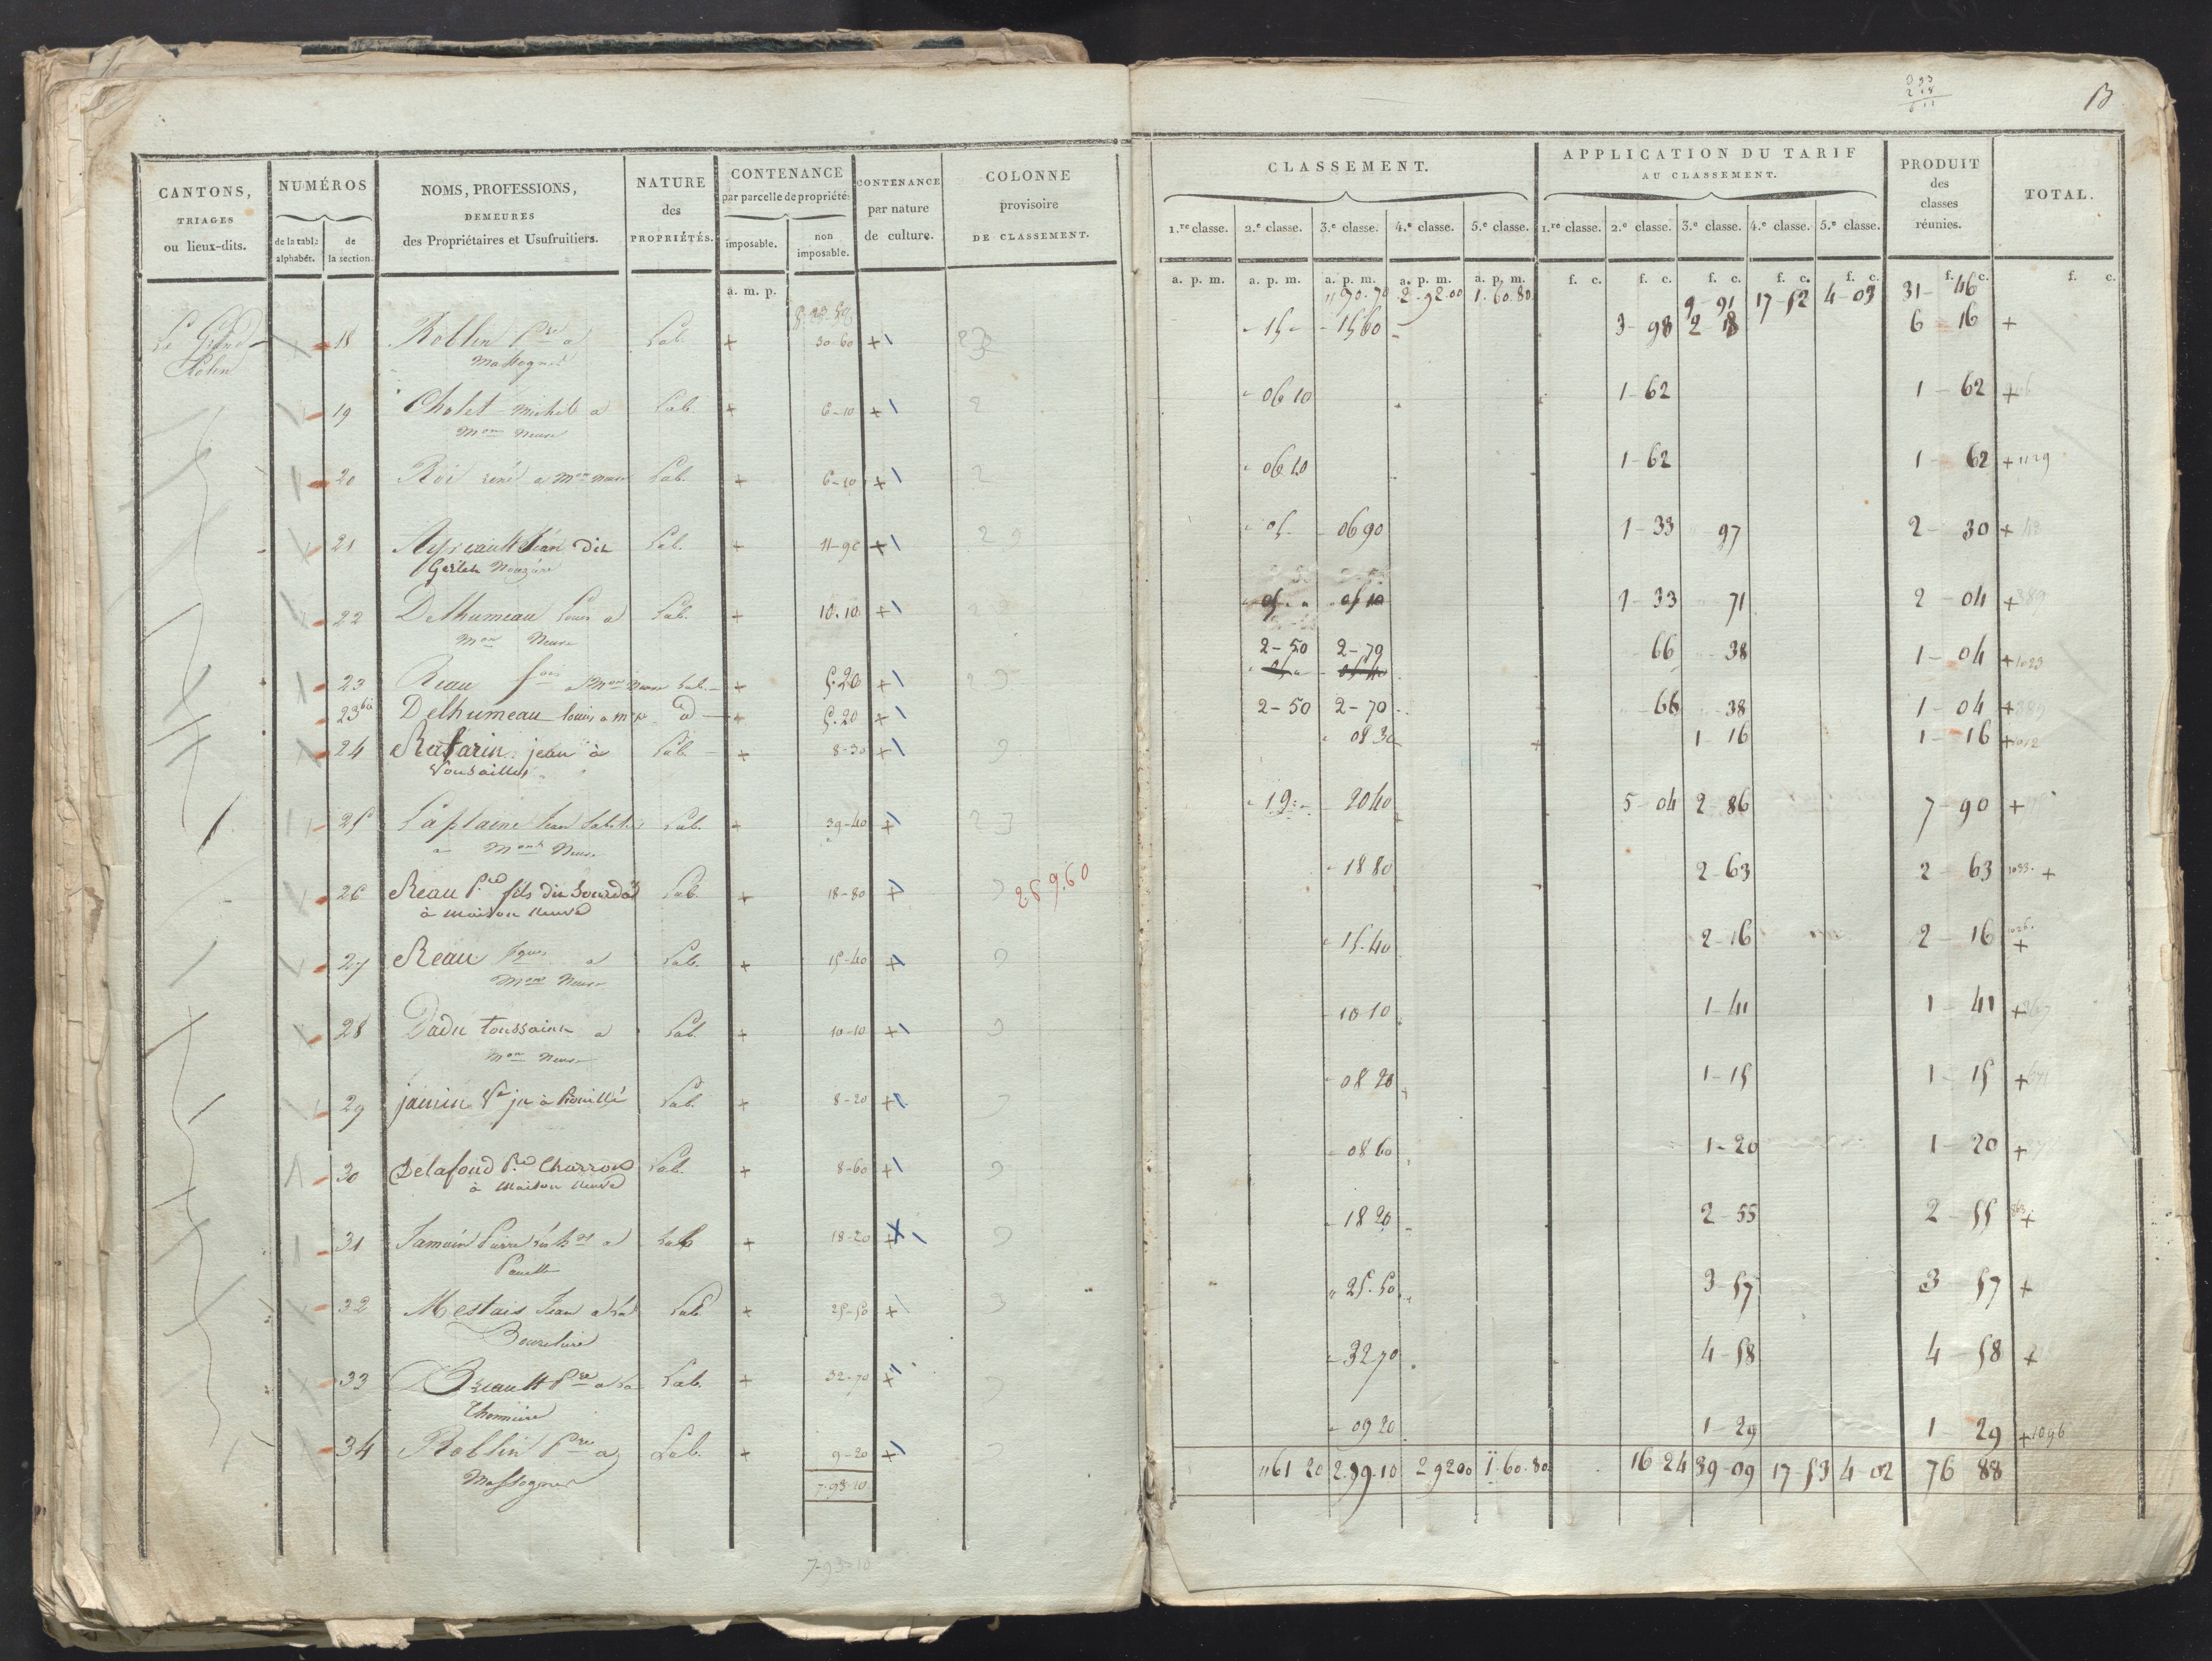 3 93
2 18
6 11
13
CANTONS, TRIAGES ou lieux-dits.
NUMÉROS
de la tabl: alphabét.
de la section.
NOMS, PROFESSIONS, DEMEURES des Propriétaires et Usufruitiers.
NATURE des PROPRIÉTÉS.
CONTENANCE par parcelle de propriété
imposable.
non imposable.
CONTENANCE par nature de culture.
COLONNE provisoire DE CLASSEMENT.
CLASSEMENT.
1.re classe. 2.e classe. 3.e classe. 4.e classe. 5.e classe.
APPLICATION DU TARIF AU CLASSEMENT.
1.re classe. 2.e classe. 3.e classe. 4.e classe. 5.e classe.
PRODUIT des classes réunies.
TOTAL.
a. m. p.
a. p. m. a. p. m. a. p. m. a. p. m. a. p. m. f. c. f. c. f. c. f. c. f. c. f. c. f. c.
" 90-70 2-92.00 1.60.80 9-91 17-52 4-03 31-46
Le Grand 18 Roblin Pre a Lab. + 30-60 + 23 - 15 - - 15 60 3-98 2-18 6 16 +
Massognes
19 Cholet michel a Lab. + 6-10 + 2 - 06 10 1-62 1-62 +
Mon Neuve
20 Roi rené a Mon neuve Lab. + 6-10 + 2 - 06 10 1-62 1-62 + 1129
21 Jean dit Lab. + 11-90 + 23 - 05 - - 06 90 1-33 97 2-30 +
22 Delhumeau Louis a Lab. + 10.10 + - 05 - - 05 10 1-33 71 2-04 + 389
Mon Neuve
23 Reau fois a Mon Neuve Lab. + 5.20 + 2-50 2-70 66 38 1-04 + 1023
23 bis Delhumeau louis a mon id + 5.20 + 2-50 2-70 66 38 1-04 + 389
24 Rafarin jean à Lab. + 8-30 + 3 - 08 30 1 16 1-16 + 1012
Vousailles
25 Laplaine Jean Lab. + 39-40 + 23 - 19 - - 20 40 5-04 2-86 7-90 +
a Mont Neuve
26 Reau Pre fils du Sourdad Lab. + 18-80 + 3 259.60 - 18 80 2-63 2-63 1033 +
à Maison Neuve
27 Reau fques a Lab. + 15-40 + 3 - 15.40 2-16 2-16 1026 +
Mon Neuve
28 Dadu Toussaint a Lab. + 10-10 + 3 - 10 10 1-41 1-41 + 367
Mon Neuve
29 jamin Ve jn à Rouillé Lab. + 8-20 + 3 - 08 20 1-15 1-15 + 671
30 Delafond Pre Charron Lab. + 8-60 + 3 - 08 60 1-20 1-20 +
à Maison Neuve
31 Jamain Pierre a Lab + 18-20 + 3 - 18 20 2-55 2-55 +
32 Mestais Jean a la Lab + 25-50 + 3 " 25.50 3-57 3-57 +
33 Pre a la Lab. + 32-70 + 3 - 32 70 4-58 4-58 +
34 Roblin Pre a Lab. + 9-20 + 3 - 09 20 1-29 1-29 + 1096
Massognes 7-93-10
" 61 20 2.39.10 2 92 00 1.60.80 16 24 39-09 17-53 4-02 76 88
7-93-10